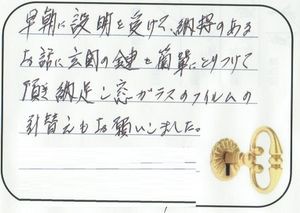 早朝に説明を受けて、納得のある
お話に玄関の鍵を簡単にとりつけて
頂き納足し窓ガラスのフイルムの
引替えもお願いしました。